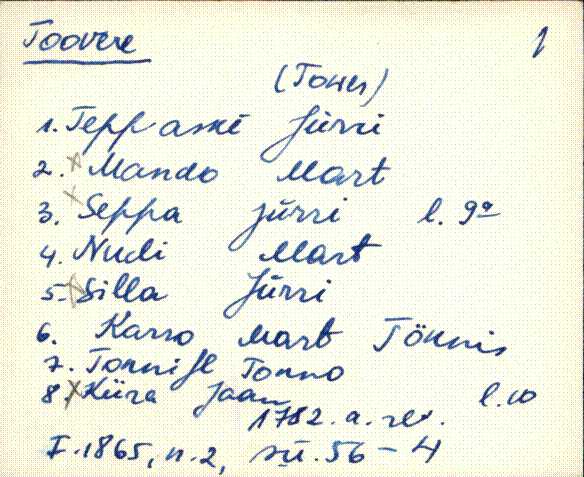 Toovere 1
(Towes)
1. Teppaske Jürri
2. x Mando Mart
3. x Seppa Jürri l. 9a
4. Nudi Mart
5. x Silla Jürri
6. Karro Mart Tönnis
7. Tonni Tonno
8. x Küra Jaan l. 10
1782. a. rev.
F. 1865, n. 2, sü. 56-4